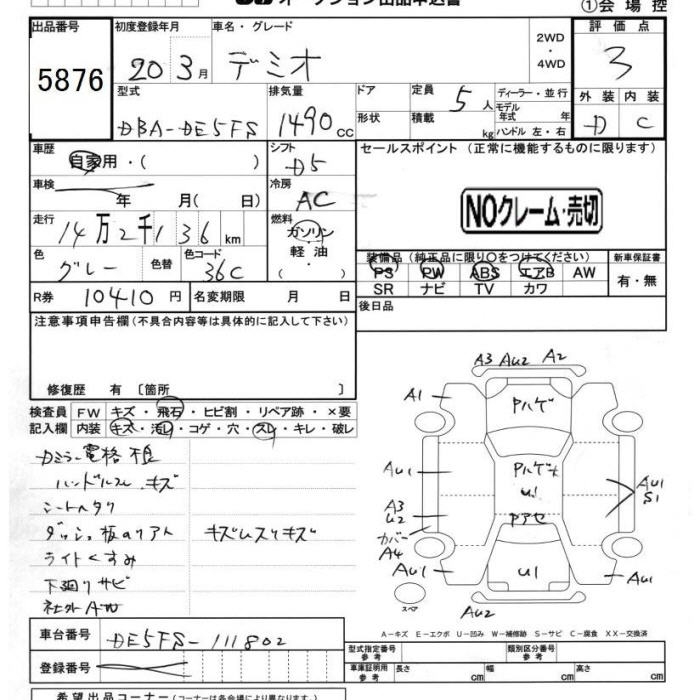 オークション出品申込書
①会場控
出品番号 初度登録年月 車名・グレード 2WD 4WD 評価点
5876 20 3月 デミオ 3
型式 排気量 ドア 定員 5人 ディーラー・並行 外装 内装
DBA-DE5FS 1490cc 形状 積載 kg モデル年式 年式 ハンドル 左・右 D C
車歴 自家用・( ) シフト D5 セールスポイント (正常に機能するものに限ります)
車検 年 月(日) 冷房 AC
NOクレーム・売切
走行 14万2千136km 燃料 ガソリン・軽油・( )
色 グレー 色替 色コード 36C
装備品 (純正品に限り○をつけてください) 新車保証書
PS PW ABS エアB AW 有・無
SR ナビ TV カワ
R券 10410円 名変期限 月 日 後日品
注意事項申告欄(不具合内容等は具体的に記入して下さい)
修復歴 有 [箇所 ]
検査員 FW キズ・飛石・ヒビ割・リペア跡・×要
記入欄 内装 キズ・汚レ・コゲ・穴・スレ・キレ・破レ
ハンドルスレ キズ
シートヘタリ
キズムスリキズ
ライトくすみ
下廻りサビ
社外AW
A3 AU2 A2
A1 Pハゲ
AU1 Pハゲ U1 AU1 S1
A3 U2 Pアセ
カバー A4
AU1 U1 AU1
スペア AU2
A-キズ E-エクボ U-凹み W-補修跡 S-サビ C-腐食 XX-交換済
車台番号 DE5FS-111802
登録番号
型式指定番号 参考 類別区分番号 参考
車庫証明用 参考 長さ cm 幅 cm 高さ cm
希望出品コーナー(コーナーは各会場により異なります)